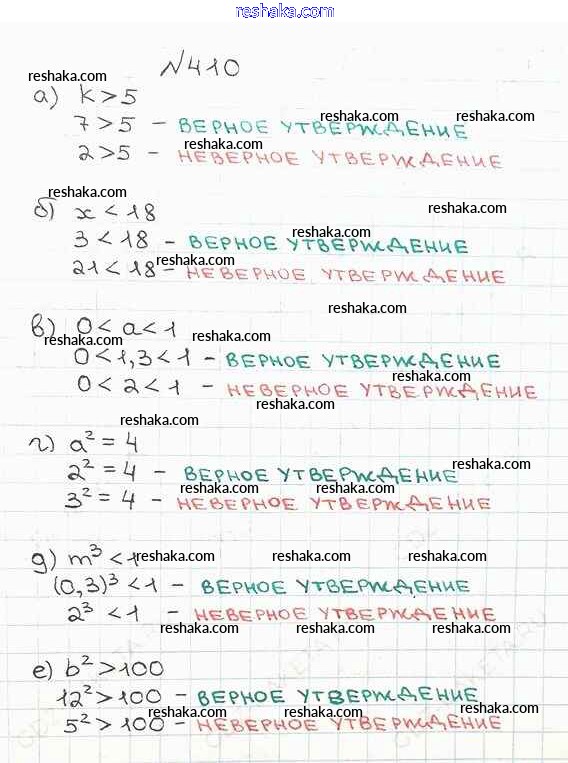 reshaka.com
№410
reshaka.com
а) k > 5
reshaka.com
7 > 5 - ВЕРНОЕ УТВЕРЖДЕНИЕ
reshaka.com
2 > 5 - НЕВЕРНОЕ УТВЕРЖДЕНИЕ
reshaka.com
reshaka.com
б) x < 18
reshaka.com
3 < 18 - ВЕРНОЕ УТВЕРЖДЕНИЕ
reshaka.com
21 < 18 - НЕВЕРНОЕ УТВЕРЖДЕНИЕ
reshaka.com
в) 0 < a < 1
reshaka.com reshaka.com
0 < 1,3 < 1 - ВЕРНОЕ УТВЕРЖДЕНИЕ
reshaka.com
0 < 2 < 1 - НЕВЕРНОЕ УТВЕРЖДЕНИЕ
reshaka.com
reshaka.com
г) a² = 4
reshaka.com
2² = 4 - ВЕРНОЕ УТВЕРЖДЕНИЕ
reshaka.com
3² = 4 - НЕВЕРНОЕ УТВЕРЖДЕНИЕ
reshaka.com
д) m³ < 1
reshaka.com reshaka.com reshaka.com
(0,3)³ < 1 - ВЕРНОЕ УТВЕРЖДЕНИЕ
2³ < 1 - НЕВЕРНОЕ УТВЕРЖДЕНИЕ
reshaka.com reshaka.com reshaka.com
е) b² > 100
reshaka.com
12² > 100 - ВЕРНОЕ УТВЕРЖДЕНИЕ
reshaka.com reshaka.com
5² > 100 - НЕВЕРНОЕ УТВЕРЖДЕНИЕ